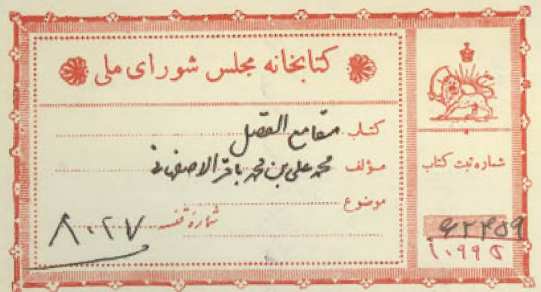 کتابخانه مجلس شورای ملی
کتاب مقامع الفضل
مؤلف محمد علی بن محمد باقر الاصفهانی
موضوع
شماره قفسه ۸۰۲۷
شماره ثبت کتاب
۹۲۴۵۹
۱۰۹۹۵